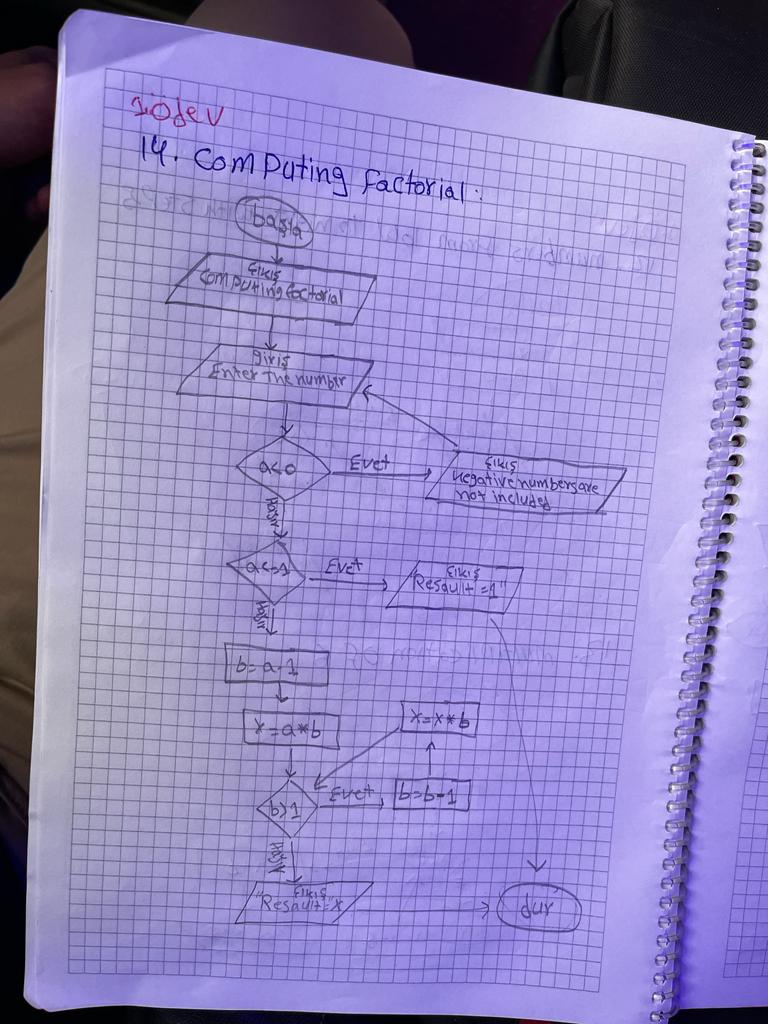 1.ödev
14. Computing factorial:
başla
Çıkış
Computing factorial
giriş
Enter The number
a<0
Evet
Çıkış
Negative numbers are
not included
Hayır
a<=1
Evet
Çıkış
"Resault =1"
Hayır
b=a-1
x=a*b
x=x*b
b>1
Evet
b=b-1
Hayır
Çıkış
"Resault="x
dur